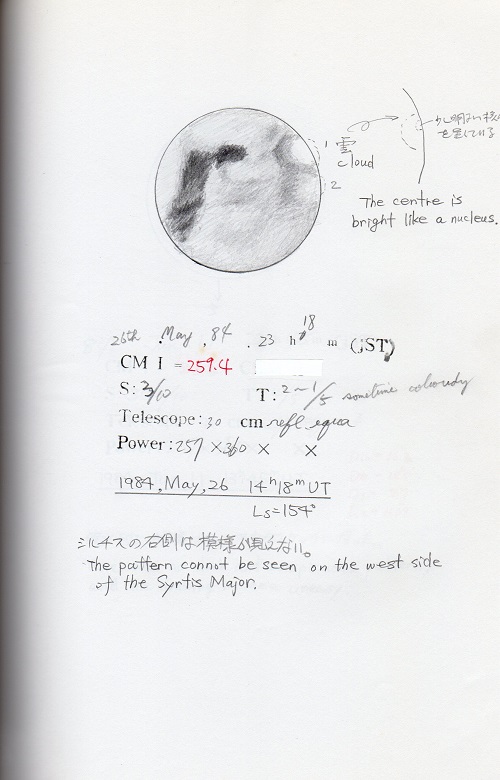 1 雲
cloud
2
少し明るい核
を呈している
The centre is
bright like a nucleus.
26th May, 84. 23 h 18 m (JST)
CM I = 259.4
S: 3/10 T: 2~1/5 sometime
Telescope: 30 cm refl equa
Power: 257 × 360 × ×
1984, May, 26 14h18m UT
Ls=154°
シルチスの右側は模様が見えない。
The pattern connot be seen on the west side
of the Syrtis Major.